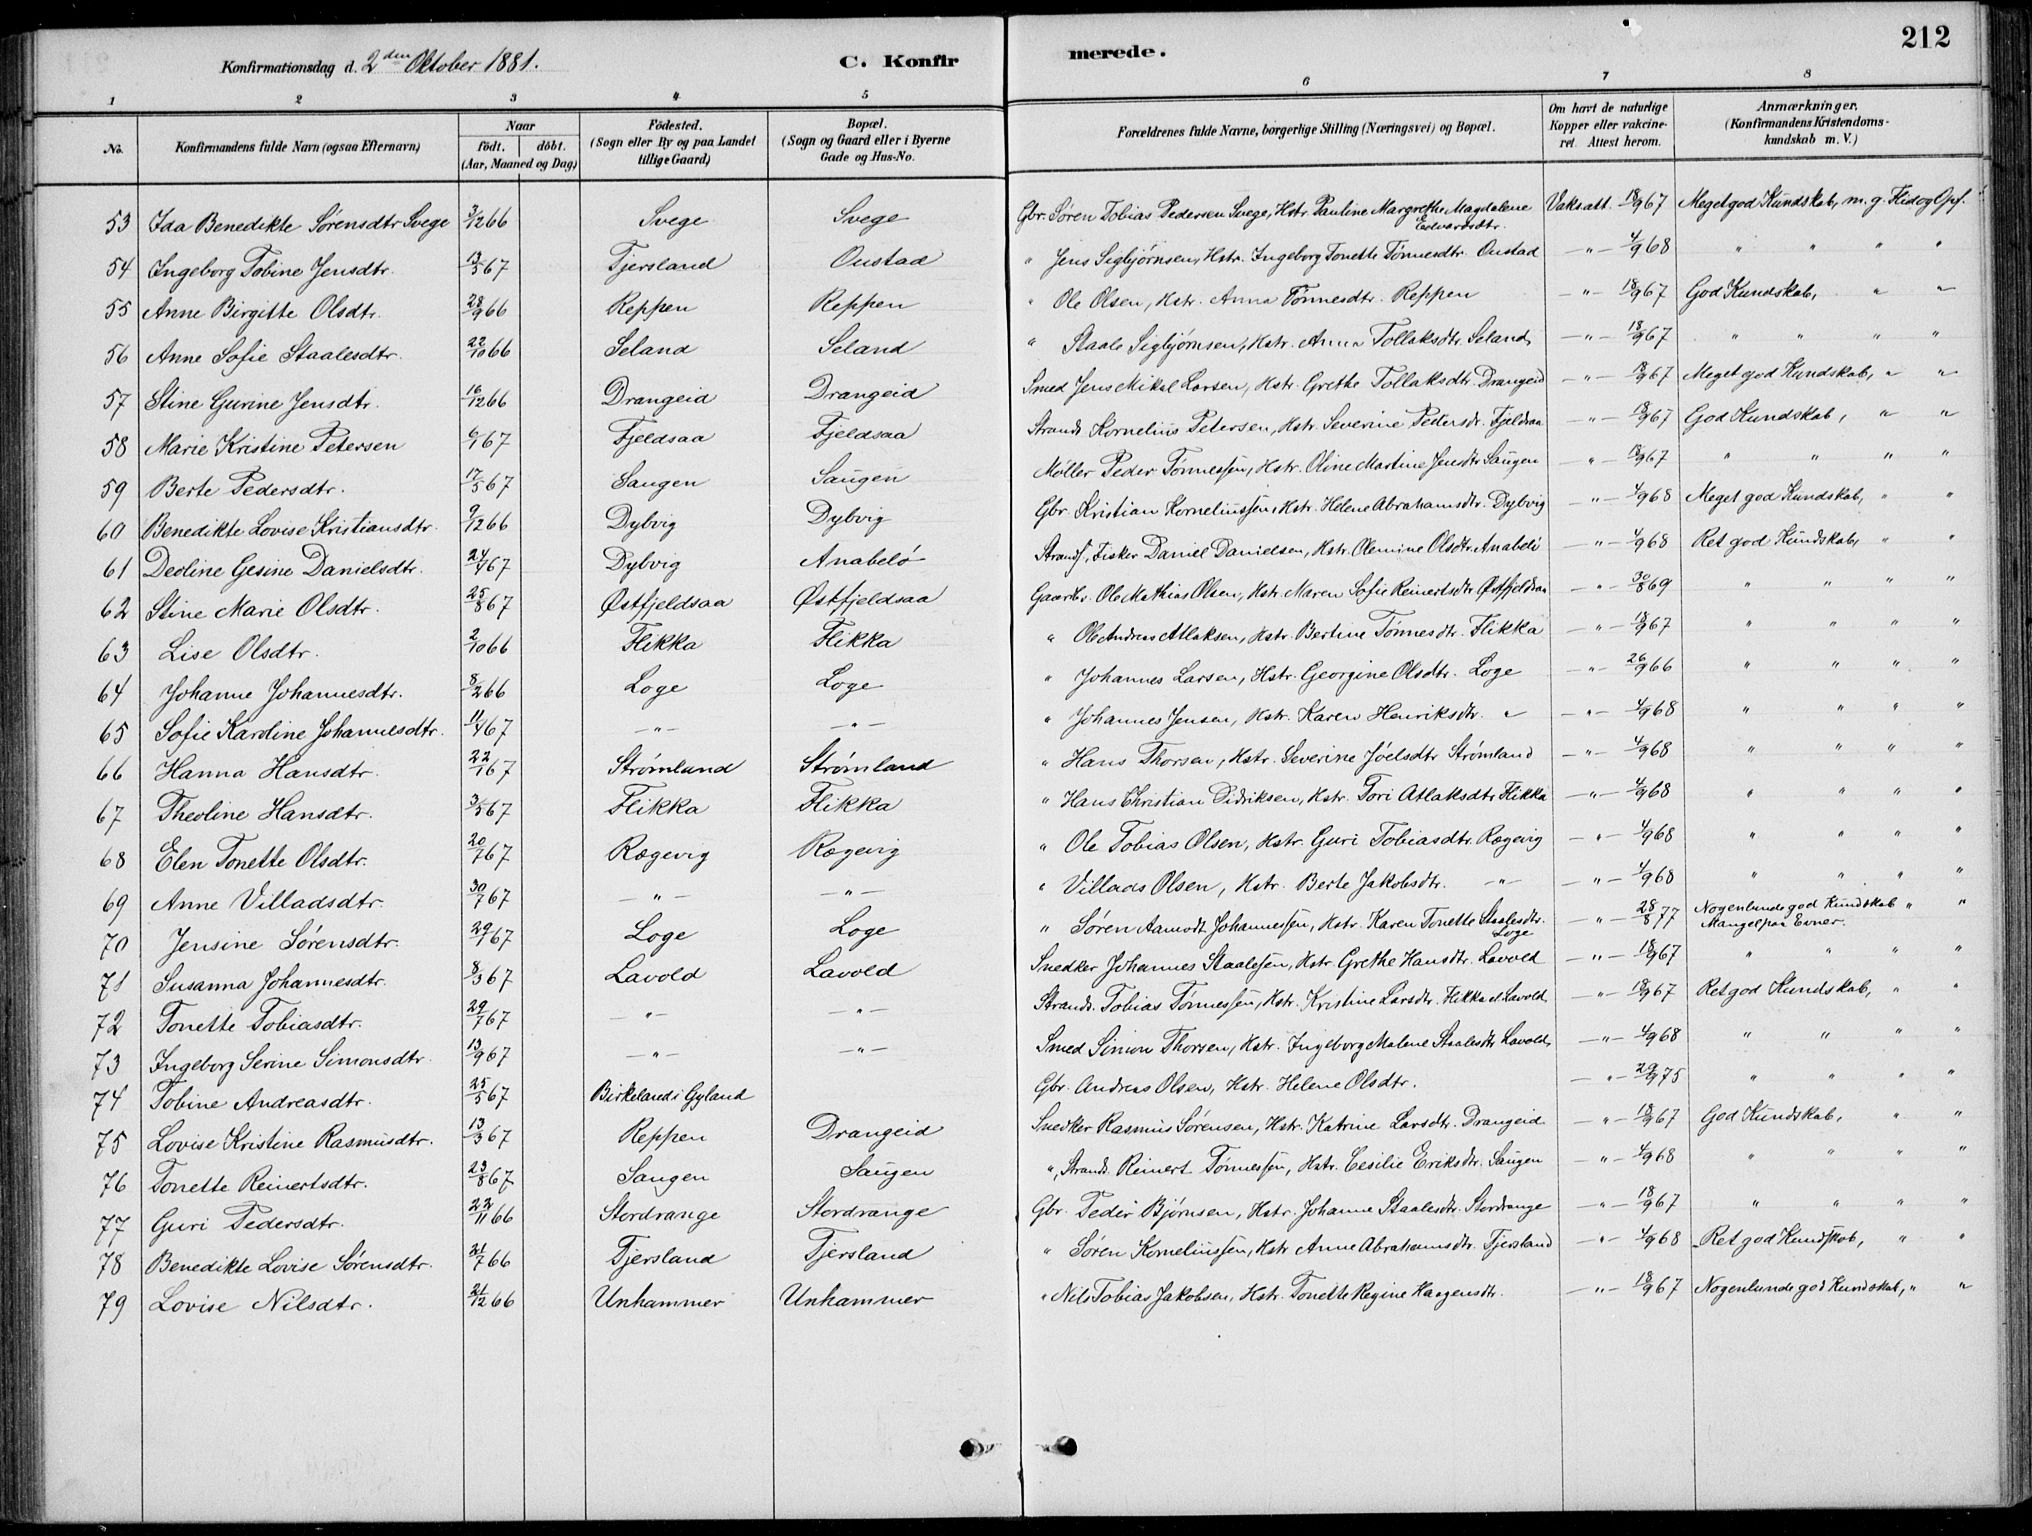 212
Konfirmationsdag d. 2den Oktober 1881. C. Konfirmerede.
1 2 3 4 5 6 7 8
No. Konfirmandens fulde Navn (ogsaa Efternavn) Naar födt. döbt. (Aar, Maaned og Dag) Födested. (Sogn eller By og paa Landet tillige Gaard) Bopæl. (Sogn og Gaard eller i Byerne Gade og Hus-No. Forældrenes fulde Navne, borgerlige Stilling (Næringsvei) og Bopæl. Om havt de naturlige Kopper eller vakcineret. Attest herom. Anmærkninger. (Konfirmandens Kristendomskundskab m. V.)
53 Ida Benedikte Sørensdtr Svege 3/12 66 Svege Svege Gbr. Søren Tobias Pedersen Svege, Hstr. Pauline Margrethe Magdalene Edvardsdtr. Vaks. att. 18/9 67 Meget god Kundskab, m. g. Flid og Opf.
54 Ingeborg Tobine Jensdtr. 13/5 67 Tjersland Oustad " Jens Sigbjørnsen, Hstr. Ingeborg Tonette Tønnesdtr. Oustad —"— 4/9 68 " " " "
55 Anne Birgitte Olsdtr. 28/9 66 Reppen Reppen " Ole Olsen, Hstr. Anna Tønnesdtr. Reppen —"— 18/9 67 God Kundskab, " "
56 Anne Sofie Staalesdtr. 22/10 66 Seland Seland " Staale Sigbjørnsen, Hstr. Anna Tollaksdtr. Seland —"— 18/9 67 " " " "
57 Stine Gurine Jensdtr. 16/12 66 Drangeid Drangeid Smed Jens Mikal Larsen, Hstr. Grethe Tollaksdtr. Drangeid —"— 18/9 67 Meget god Kundskab, " "
58 Marie Kristine Petersen 6/1 67 Fjeldsaa Fjeldsaa Strands. Kornelius Petersen, Hstr. Severine Pedersdr. Fjeldsaa —"— 18/9 67 God Kundskab, " "
59 Berte Pedersdtr. 17/5 67 Saugen Saugen Møller Peder Tønnessen, Hstr. Oline Martine Jensdtr Saugen —"— 18/9 67 " " " "
60 Benedikte Lovise Kristiansdtr. 9/12 66 Dybvig Dybvig Gbr. Kristian Korneliussen, Hstr. Helene Abrahamsdtr. Dybvig —"— 4/9 68 Meget god Kundskab, " "
61 Deoline Gesine Danielsdtr. 24/4 67 Dybvig Anabelö Strands, Fisker Daniel Danielsen, Hstr. Olemine Olsdtr. Anabelö —"— 4/9 68 Ret god Kundskab, " "
62 Stine Marie Olsdtr. 25/8 67 Østfjeldsaa Østfjeldsaa Gaardbr. Ole Mathias Olsen, Hstr. Maren Sofie Reinertsdtr Østfjeldsaa —"— 30/8 69 " " " "
63 Lise Olsdtr. 2/10 66 Flikka Flikka " Ole Andreas Atlaksen, Hstr. Bertine Tønnesdtr. Flikka —"— 18/9 67 " " " "
64 Johanne Johannesdtr. 8/2 66 Loge Loge " Johannes Larsen, Hstr. Georgine Olsdtr. Loge —"— 26/9 66 " " " "
65 Sofie Karoline Johannesdtr. 11/4 67 —"— —"— " Johannes Jensen, Hstr. Karen Henriksdtr. " —"— 4/9 68 " " " "
66 Hanna Hansdtr. 22/1 67 Strömland Strömland " Hans Thorsen, Hstr. Severine Jóelsdtr Strömland —"— 4/9 68 " " " "
67 Theoline Hansdtr. 3/5 67 Flikka Flikka " Hans Christian Didriksen, Hstr. Tori Atlaksdtr Flikka —"— 4/9 68 " " " "
68 Elen Tonette Olsdtr. 20/7 67 Rægevig Rægevig " Ole Tobias Olsen, Hstr. Guri Tobiasdtr. Rægevig —"— 4/9 68 " " " "
69 Anne Villadsdtr. 30/7 67 —"— —"— " Villads Olsen, Hstr. Berte Jakobsdtr. —"— —"— 4/9 68 " " " "
70 Jensine Sørensdtr. 29/1 67 Loge Loge " Søren Aamodt Johannessen, Hstr. Karen Tonette Staalesdtr. Loge —"— 28/8 77 Nogenlunde god Kundskab " " Mangel paa Evner.
71 Susanna Johannesdtr. 8/3 67 Lavold Lavold Snedker Johannes Staalesen, Hstr. Grethe Hansdtr. Lavold —"— 18/9 67 " " " "
72 Tonette Tobiasdtr. 29/7 67 —"— —"— Strands. Tobias Tønnessen, Hstr. Kristine Larsdtr. Flikka el Lavold —"— 18/9 67 Ret god Kundskab, " "
73 Ingeborg Serine Simonsdtr. 13/9 67 —"— —"— Smed Simon Thorsen, Hstr. Ingeborg Malene Staalesdtr Lavold —"— 4/9 68 " " " "
74 Tobine Andreasdtr. 25/5 67 Birkeland i Gyland Gbr. Andreas Olsen, Hstr. Helene Olsdtr. —"— 29/9 75 " " " "
75 Lovise Kristine Rasmusdtr. 13/3 67 Reppen Drangeid Snedker Rasmus Sørensen, Hstr. Katrine Larsdtr. Drangeid —"— 18/9 67 God Kundskab, " "
76 Tonette Reinertsdtr. 23/8 67 Saugen Saugen ", Strands. Reinert Tønnessen, Hstr. Cesilie Eriksdtr. Saugen —"— 4/9 68 " " " "
77 Guri Pedersdtr. 22/11 66 Stordrange Stordrange Gbr. Peder Bjørnsen, Hstr. Johanne Staalesdtr. Stordrange —"— 18/9 67 " " " "
78 Benedikte Lovise Sørensdtr. 21/7 66 Tjersland Tjersland " Søren Korneliussen, Hstr Anne Abrahamsdtr. Tjersland —"— 4/9 68 Ret god Kundskab, " "
79 Lovise Nilsdtr. 21/12 66 Unhammer Unhammer " Nils Tobias Jakobsen, Hstr. Tonette Regine Haagensdtr. —"— 18/9 67 Nogenlunde god Kundskab, " "